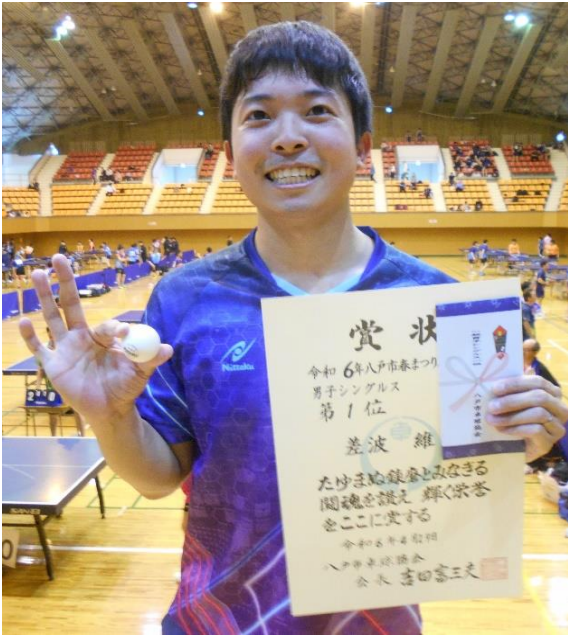 賞状
令和6年八戸市春まつり
男子シングルス
第1位
差波 維
たゆまぬ錬磨とみなぎる
闘魂を讃え輝く栄誉
をここに賞する
令和6年4月29日
八戸市卓球協会
会長 吉田富三夫
八戸市卓球協会
Nittaku
SAN-EI